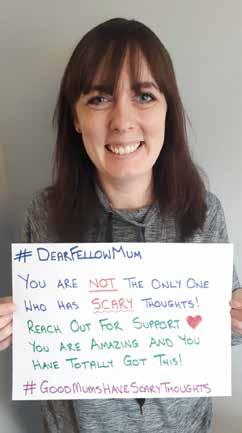 #DEARFELLOWMUM
YOU ARE NOT THE ONLY ONE
WHO HAS SCARY THOUGHTS!
REACH OUT FOR SUPPORT ❤
YOU ARE AMAZING AND YOU
HAVE TOTALLY GOT THIS!
#GOODMUMSHAVESCARYTHOUGHTS